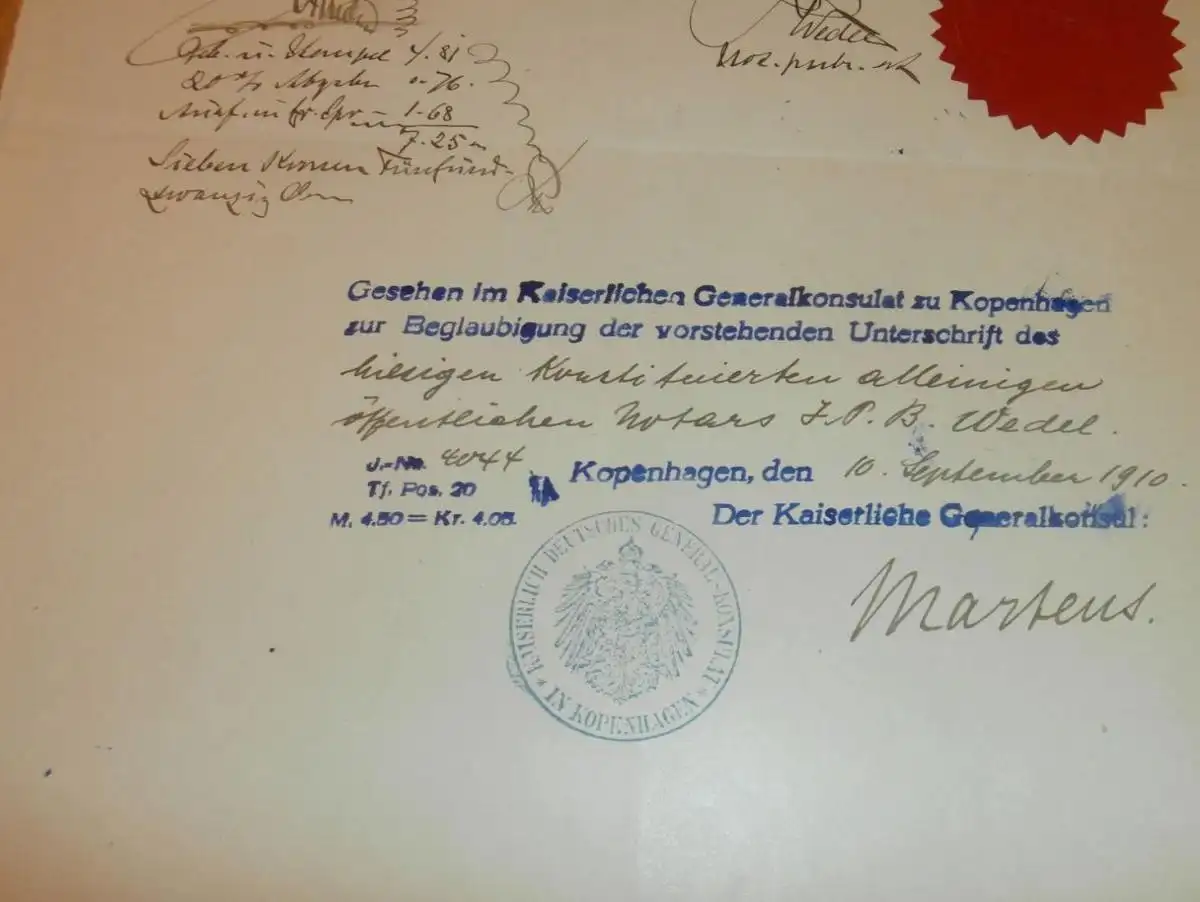 Geb. u. Stempel 4.81
20 % Abgabe 0.76.
1.68
7.25
Sieben Kronen Fünfund-
zwanzig Øre
Wedel
Not. publ.
Gesehen im Kaiserlichen Generalkonsulat zu Kopenhagen
zur Beglaubigung der vorstehenden Unterschrift des
hiesigen Konstituierten alleinigen
öffentlichen Notars J. P. B. Wedel.
J.-No. 4044
Tf. Pos. 20
M. 4.50 = Kr. 4.05.
Kopenhagen, den 10. September 1910.
Der Kaiserliche Generalkonsul:
Martens.
* KAISERLICH DEUTSCHES GENERAL-KONSULAT *
IN KOPENHAGEN